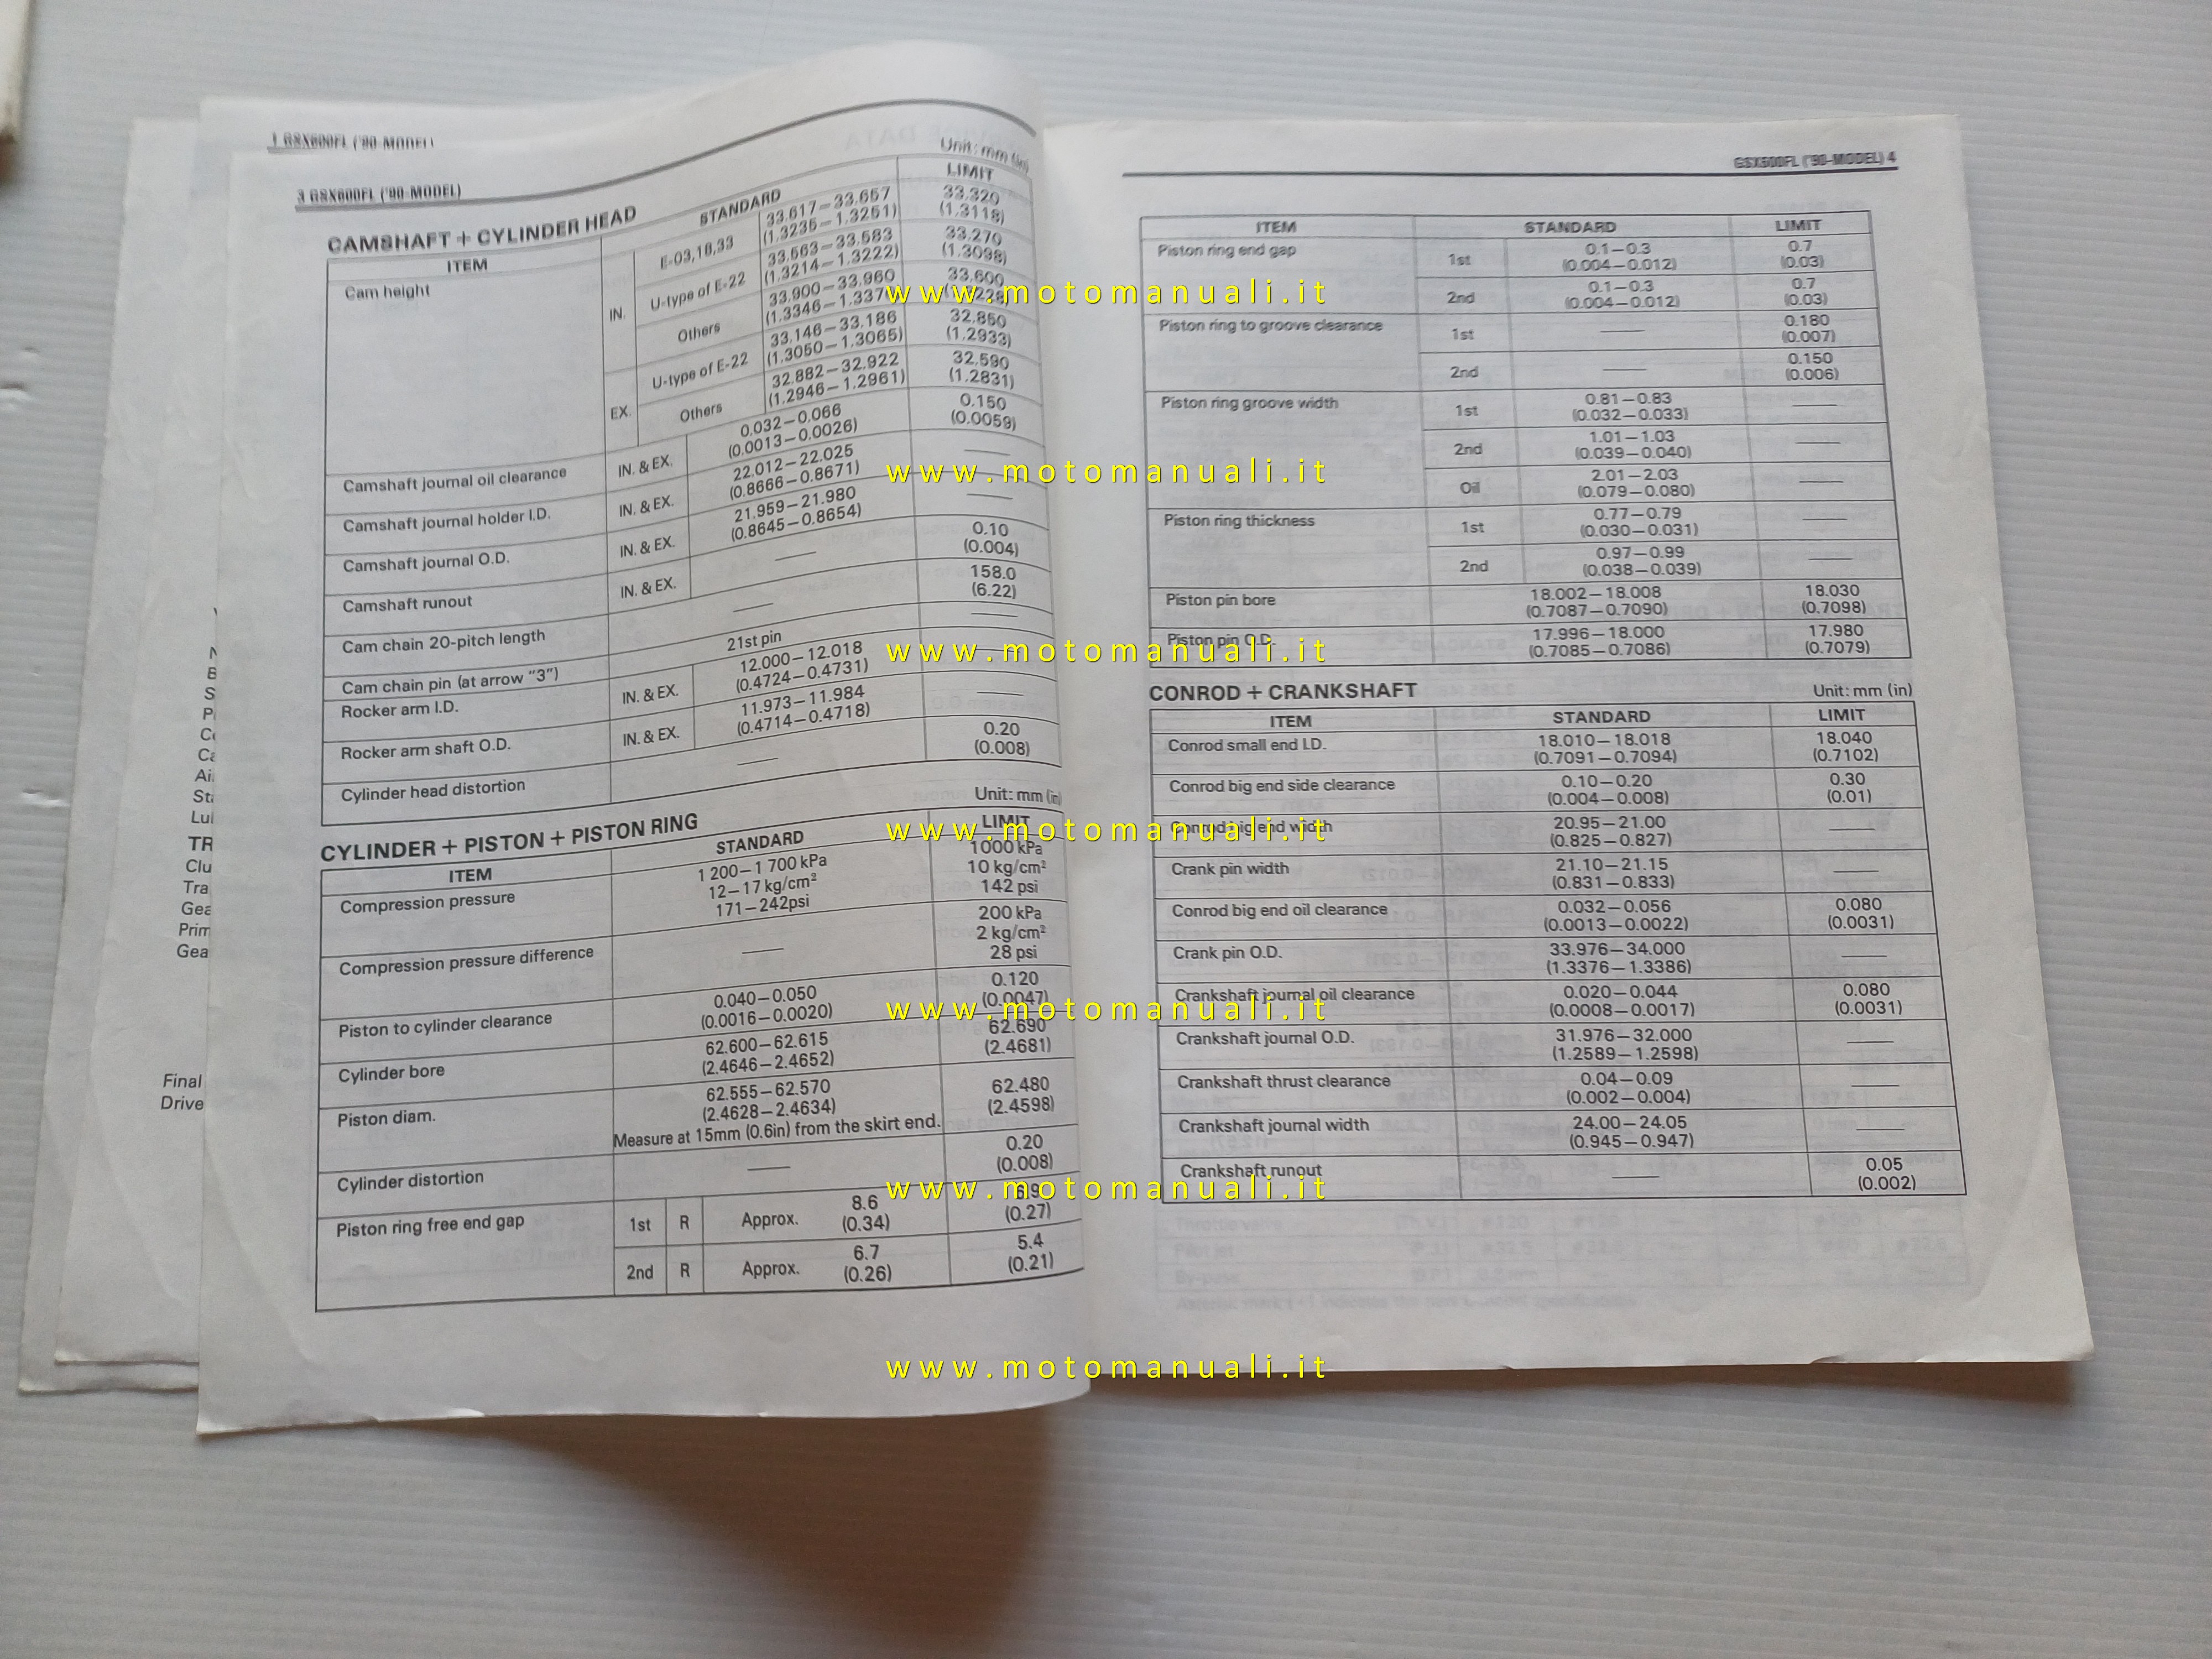 1 GSX600FL ('90-MODEL)
3 GSX600FL ('90-MODEL)
CAMSHAFT + CYLINDER HEAD
Unit: mm (in)
ITEM STANDARD LIMIT
Cam height IN. E-03,18,33 33.617–33.657 33.320
(1.3235–1.3251) (1.3118)
U-type of E-22 33.563–33.583 33.270
(1.3214–1.3222) (1.3098)
Others 33.900–33.960 33.600
(1.3346–1.337
EX. U-type of E-22 33.146–33.186 32.850
(1.3050–1.3065) (1.2933)
Others 32.882–32.922 32.590
(1.2946–1.2961) (1.2831)
Camshaft journal oil clearance IN. & EX. 0.032–0.066 0.150
(0.0013–0.0026) (0.0059)
Camshaft journal holder I.D. IN. & EX. 22.012–22.025 ——
(0.8666–0.8671)
Camshaft journal O.D. IN. & EX. 21.959–21.980 ——
(0.8645–0.8654)
Camshaft runout IN. & EX. —— 0.10
(0.004)
Cam chain 20-pitch length —— 158.0
(6.22)
Cam chain pin (at arrow "3") 21st pin ——
Rocker arm I.D. IN. & EX. 12.000–12.018 ——
(0.4724–0.4731)
Rocker arm shaft O.D. IN. & EX. 11.973–11.984 ——
(0.4714–0.4718)
Cylinder head distortion —— 0.20
(0.008)
CYLINDER + PISTON + PISTON RING
Unit: mm (in)
ITEM STANDARD LIMIT
Compression pressure 1 200–1 700 kPa 1000 kPa
12–17 kg/cm² 10 kg/cm²
171–242psi 142 psi
Compression pressure difference —— 200 kPa
2 kg/cm²
28 psi
Piston to cylinder clearance 0.040–0.050 0.120
(0.0016–0.0020) (0.0047)
Cylinder bore 62.600–62.615 62.690
(2.4646–2.4652) (2.4681)
Piston diam. 62.555–62.570 62.480
(2.4628–2.4634) (2.4598)
Measure at 15mm (0.6in) from the skirt end.
Cylinder distortion —— 0.20
(0.008)
Piston ring free end gap 1st R Approx. 8.6 6.9
(0.34) (0.27)
2nd R Approx. 6.7 5.4
(0.26) (0.21)
Final
Drive
GSX600FL ('90-MODEL) 4
ITEM STANDARD LIMIT
Piston ring end gap 1st 0.1–0.3 0.7
(0.004–0.012) (0.03)
2nd 0.1–0.3 0.7
(0.004–0.012) (0.03)
Piston ring to groove clearance 1st —— 0.180
(0.007)
2nd —— 0.150
(0.006)
Piston ring groove width 1st 0.81–0.83 ——
(0.032–0.033)
2nd 1.01–1.03 ——
(0.039–0.040)
Oil 2.01–2.03 ——
(0.079–0.080)
Piston ring thickness 1st 0.77–0.79 ——
(0.030–0.031)
2nd 0.97–0.99 ——
(0.038–0.039)
Piston pin bore 18.002–18.008 18.030
(0.7087–0.7090) (0.7098)
Piston pin O.D. 17.996–18.000 17.980
(0.7085–0.7086) (0.7079)
CONROD + CRANKSHAFT
Unit: mm (in)
ITEM STANDARD LIMIT
Conrod small end I.D. 18.010–18.018 18.040
(0.7091–0.7094) (0.7102)
Conrod big end side clearance 0.10–0.20 0.30
(0.004–0.008) (0.01)
Conrod big end width 20.95–21.00 ——
(0.825–0.827)
Crank pin width 21.10–21.15 ——
(0.831–0.833)
Conrod big end oil clearance 0.032–0.056 0.080
(0.0013–0.0022) (0.0031)
Crank pin O.D. 33.976–34.000 ——
(1.3376–1.3386)
Crankshaft journal oil clearance 0.020–0.044 0.080
(0.0008–0.0017) (0.0031)
Crankshaft journal O.D. 31.976–32.000 ——
(1.2589–1.2598)
Crankshaft thrust clearance 0.04–0.09 ——
(0.002–0.004)
Crankshaft journal width 24.00–24.05 ——
(0.945–0.947)
Crankshaft runout —— 0.05
(0.002)
www.motomanuali.it
www.motomanuali.it
www.motomanuali.it
www.motomanuali.it
www.motomanuali.it
www.motomanuali.it
www.motomanuali.it